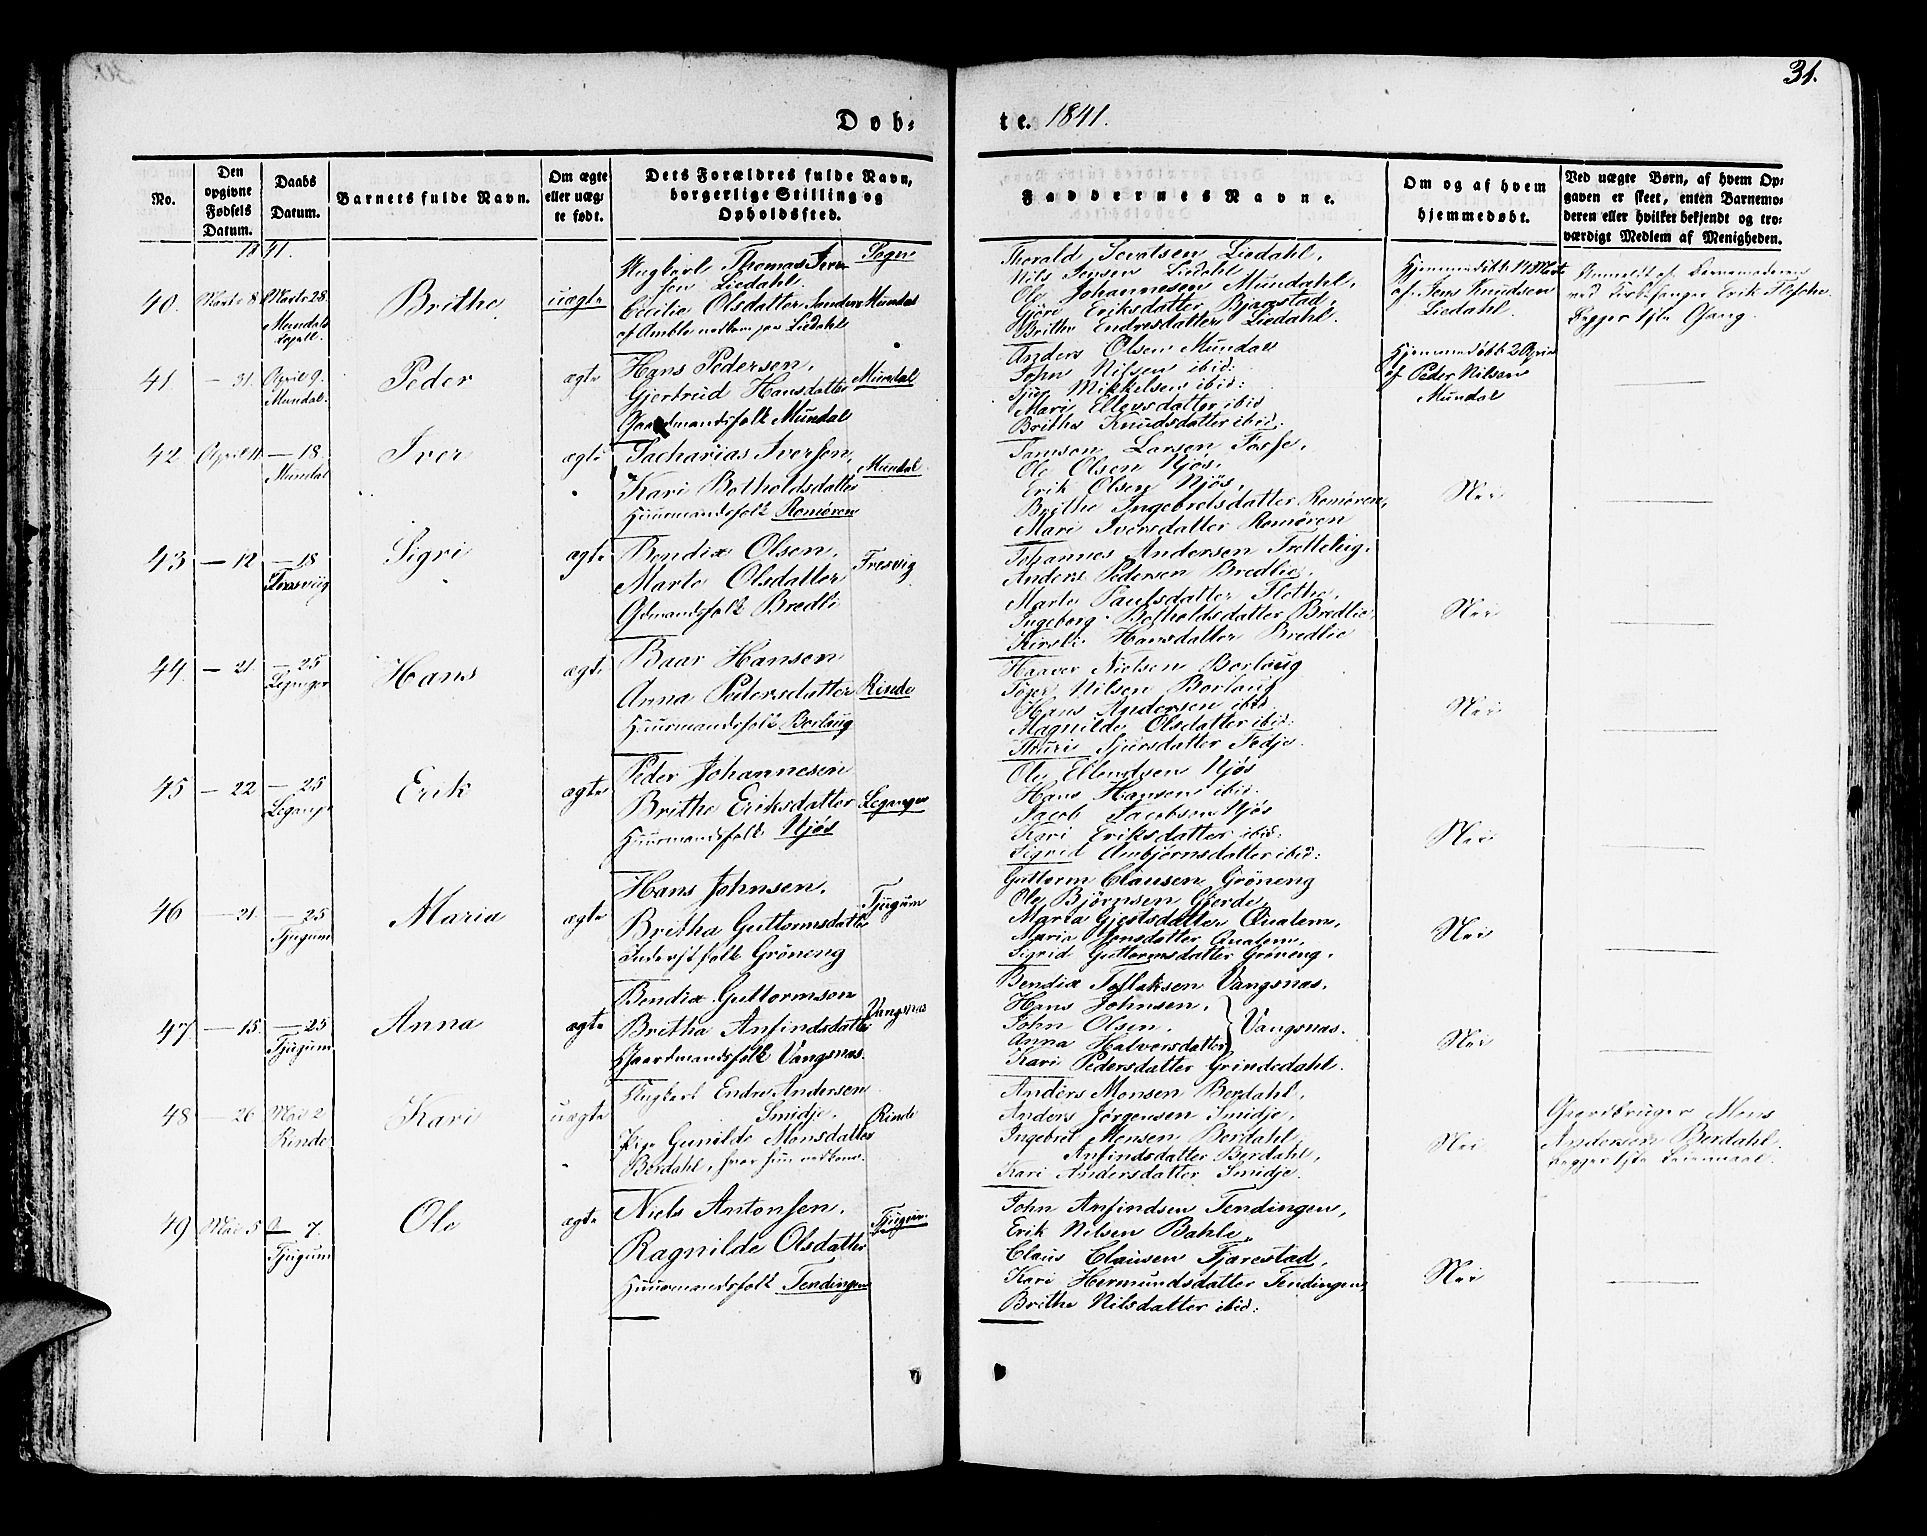 31.
Døb-
te. 1841.
No.
Den opgivne Fødsels Datum.
Daabs Datum.
Barnets fulde Navn.
Om ægte eller uægte født.
Dets Forældres fulde Navn, borgerlige Stilling og Opholdssted.
Faddernes Navne.
Om og af hvem hjemmedøbt.
Ved uægte Børn, af hvem Opgaven er skeet, enten Barnemoderen eller hvilket bekjendt og troværdigt Medlem af Menigheden.
1841.
Sogn
40. Marts 8 Marts 28. Mundals Brithe uægte
Ungkarl Thomas Iversen Liedahl.
Cecilia Olsdatter
Mundal
Liedahl
Liedahl,
Nils Jensen Liedahl
Ole Johannesen Mundahl,
Gjøri Eriksdatter Bjaastad,
Brithe Endresdatter Liedahl.
Hjemmedøbt 17 Marts
af Jens Knudsen
Liedahl.
Anmeldt af Barnemoderen
41. — 31. April 9. Mundal. Peder ægte
Hans Pedersen,
Gjertrud Hansdatter
Gaardmandsfolk Mundal
Mundal
Anders Olsen Mundal
John Nilsen ibid:
Mikkelsen ibid:
Mari Ellensdatter ibid
Brithe Knudsdatter ibid.
Hjemmedøbt 2 April
af Peder Nilsen
Mundal
42. April 11 — 18. Mundal Iver ægte
Zacharias Iversen,
Kari Botholdsdatter
Huusmandsfolk Romøren
Mundal
Samson Larsen Fosse,
Ole Olsen Njøs,
Erik Olsen Njøs,
Brithe Ingebretsdatter Romøren,
Mari Iversdatter Romøren
Nei
43 — 12 — 18 Fresvig Sigri ægte
Bendix Olsen,
Marte Olsdatter
Gdmandsfolk Bredli
Fresvig
Johannes Andersen Tretteteig.
Anders Pedersen Bredlie.
Marte Paulsdatter Flethe,
Ingeborg Botholdsdatter Bredlie,
Kirsti Hansdatter Bredlie
Nei
44. — 21. — 25 Leganger Hans ægte
Baar Hansen
Anna Pedersdatter
Huusmandsfolk Borlaug
Risede
Haaver Nielsen Borlaug
Nilsen Borlaug
Hans Andersen ibid.
Magnilde Olsdatter ibid:
Thuri Sjursdatter Fedje.
Nei
45 — 22 — 25 Leganger Erik ægte
Peder Johannesen
Brithe Eriksdatter
Huusmandsfolk Njøs
Leganger
Ole Ellendsen Njøs
Hans Hansen ibid.
Jacob Jacobsen Njøs
Kari Eriksdatter ibid:
Sigrid Anbjørnsdatter ibid:
Nei
46 — 21. — 25 Tjugum Maria ægte
Hans Johnsen.
Britha Guttormsdatter
Grøneng
Tjugum
Guttorm Clausen Grøneng
Ole Bjørnsen Gjerde,
Maria Gjestsdatter Qualem,
Maria Jensdatter Qualem,
Sigrid Guttormsdatter Grøneng.
Nei
47 — 15 — 25 Tjugum Anna ægte
Bendix Guttormson
Britha Anfindsdatter
Gaardmandsfolk Vangsnæs.
Vangsnæs
Bendix Tollaksen Vangsnæs.
Hans Johnsen,
John Olsen,
Anna Halversdatter } Vangsnæs.
Kari Pedersdatter Grindedahl.
Nei
48 — 26 Mai 2 Rinde Kari uægte
Ungkarl Endre Andersen
Smidje.
Pige Gunilde Monsdatter
Berdahl, hvor hun
Rinde
Anders Monsen Berdahl,
Anders Jørgensen Smidje,
Ingebret Monsen Berdahl,
Anfindsdatter Berdahl,
Kari Andersdatter Smidje.
Nei.
Gaardbruger Mons
Andersen Berdahl.
Leiermaal.
49 Mai 5 7. Tjugum Ole ægte
Niels Antonsen.
Ragnilde Olsdatter
Huusmandsfolk Tendingen
Tjugum
John Anfindsen Tendingen,
Erik Nilsen Bahle,
Claus Clausen Fjærestad,
Kari Hermundsdatter Tendingen,
Brithe Nilsdatter ibid:
Nei